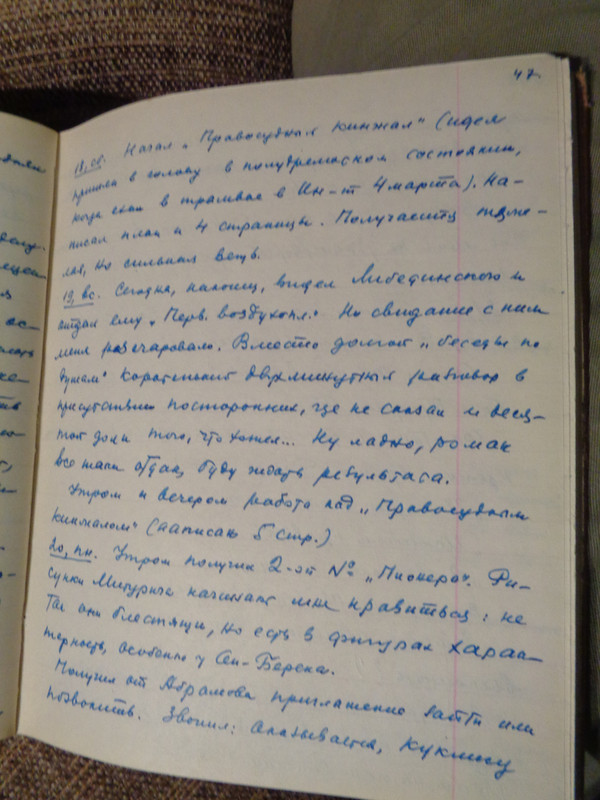 47
18, сб. Начал „Правосудный кинжал" (идея
пришла в голову в полудремоском состоянии,
когда ехал в трамвае в Ин-т 4 марта). На-
писал план и 4 страницы. Получается тяже-
лая, но сильная вещь.
19, вс. Сегодня, наконец, видел Либединского и
отдал ему „Перв. воздухопл." Но свидание с ним
меня разочаровало. Вместо долгой „беседы по
душам" коротенький двухминутный разговор в
присутствии посторонних, где не сказал и деся-
той доли того, что хотел... Ну ладно, роман
все таки отдал, буду ждать результата.
Утром и вечером работа над „Правосудным
кинжалом" (написано 5 стр.)
20, пн. Утром получил 2-ой № „Пионера". Ри-
сунки Митурича начинают мне нравиться: не
так они блестящи, но есть в фигурах харак-
терность, особенно у Сен-Берена.
Получил от Абрамова приглашение зайти или
позвонить. Звонил: Оказывается, Куклису